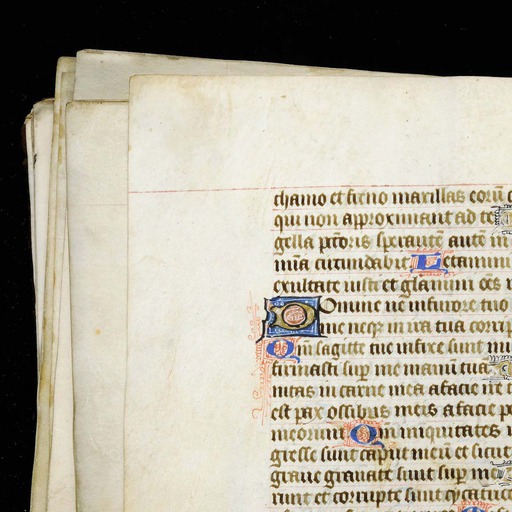 chamo et freno maxillas eorū c
qui non approximant ad te
gella pctōris sperantē autē in
mīa circumdabit Letamini
exultate iusti et glamini oēs r
Domine ne infurore tuo
me neqꝫ in ira tua corrip
Qm sagitte tue infixe sunt mi
firmasti sup me manū tuā
nitas in carne mea afacie ire t
est pax ossibus meis afacie p
meorum Qm iniquitates
gresse sunt caput meū et sicut
graue grauate sunt sup me
runt et corrupte sunt cycatrice